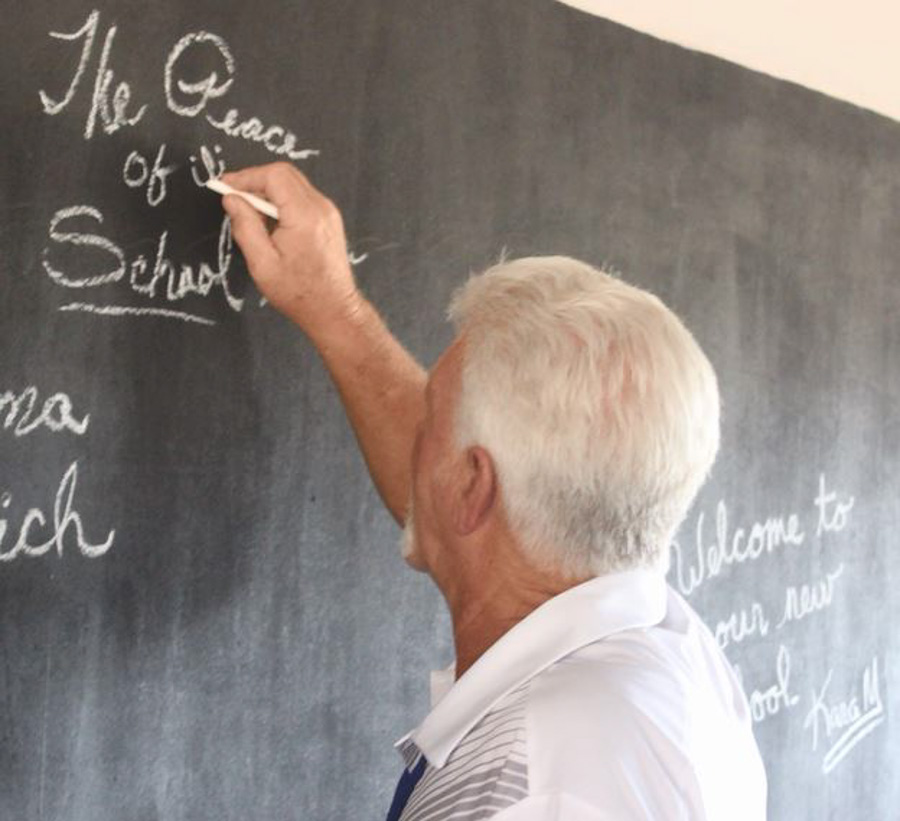 The Peace
of
School
ma
ich
Welcome to
our new
ool
Kara M